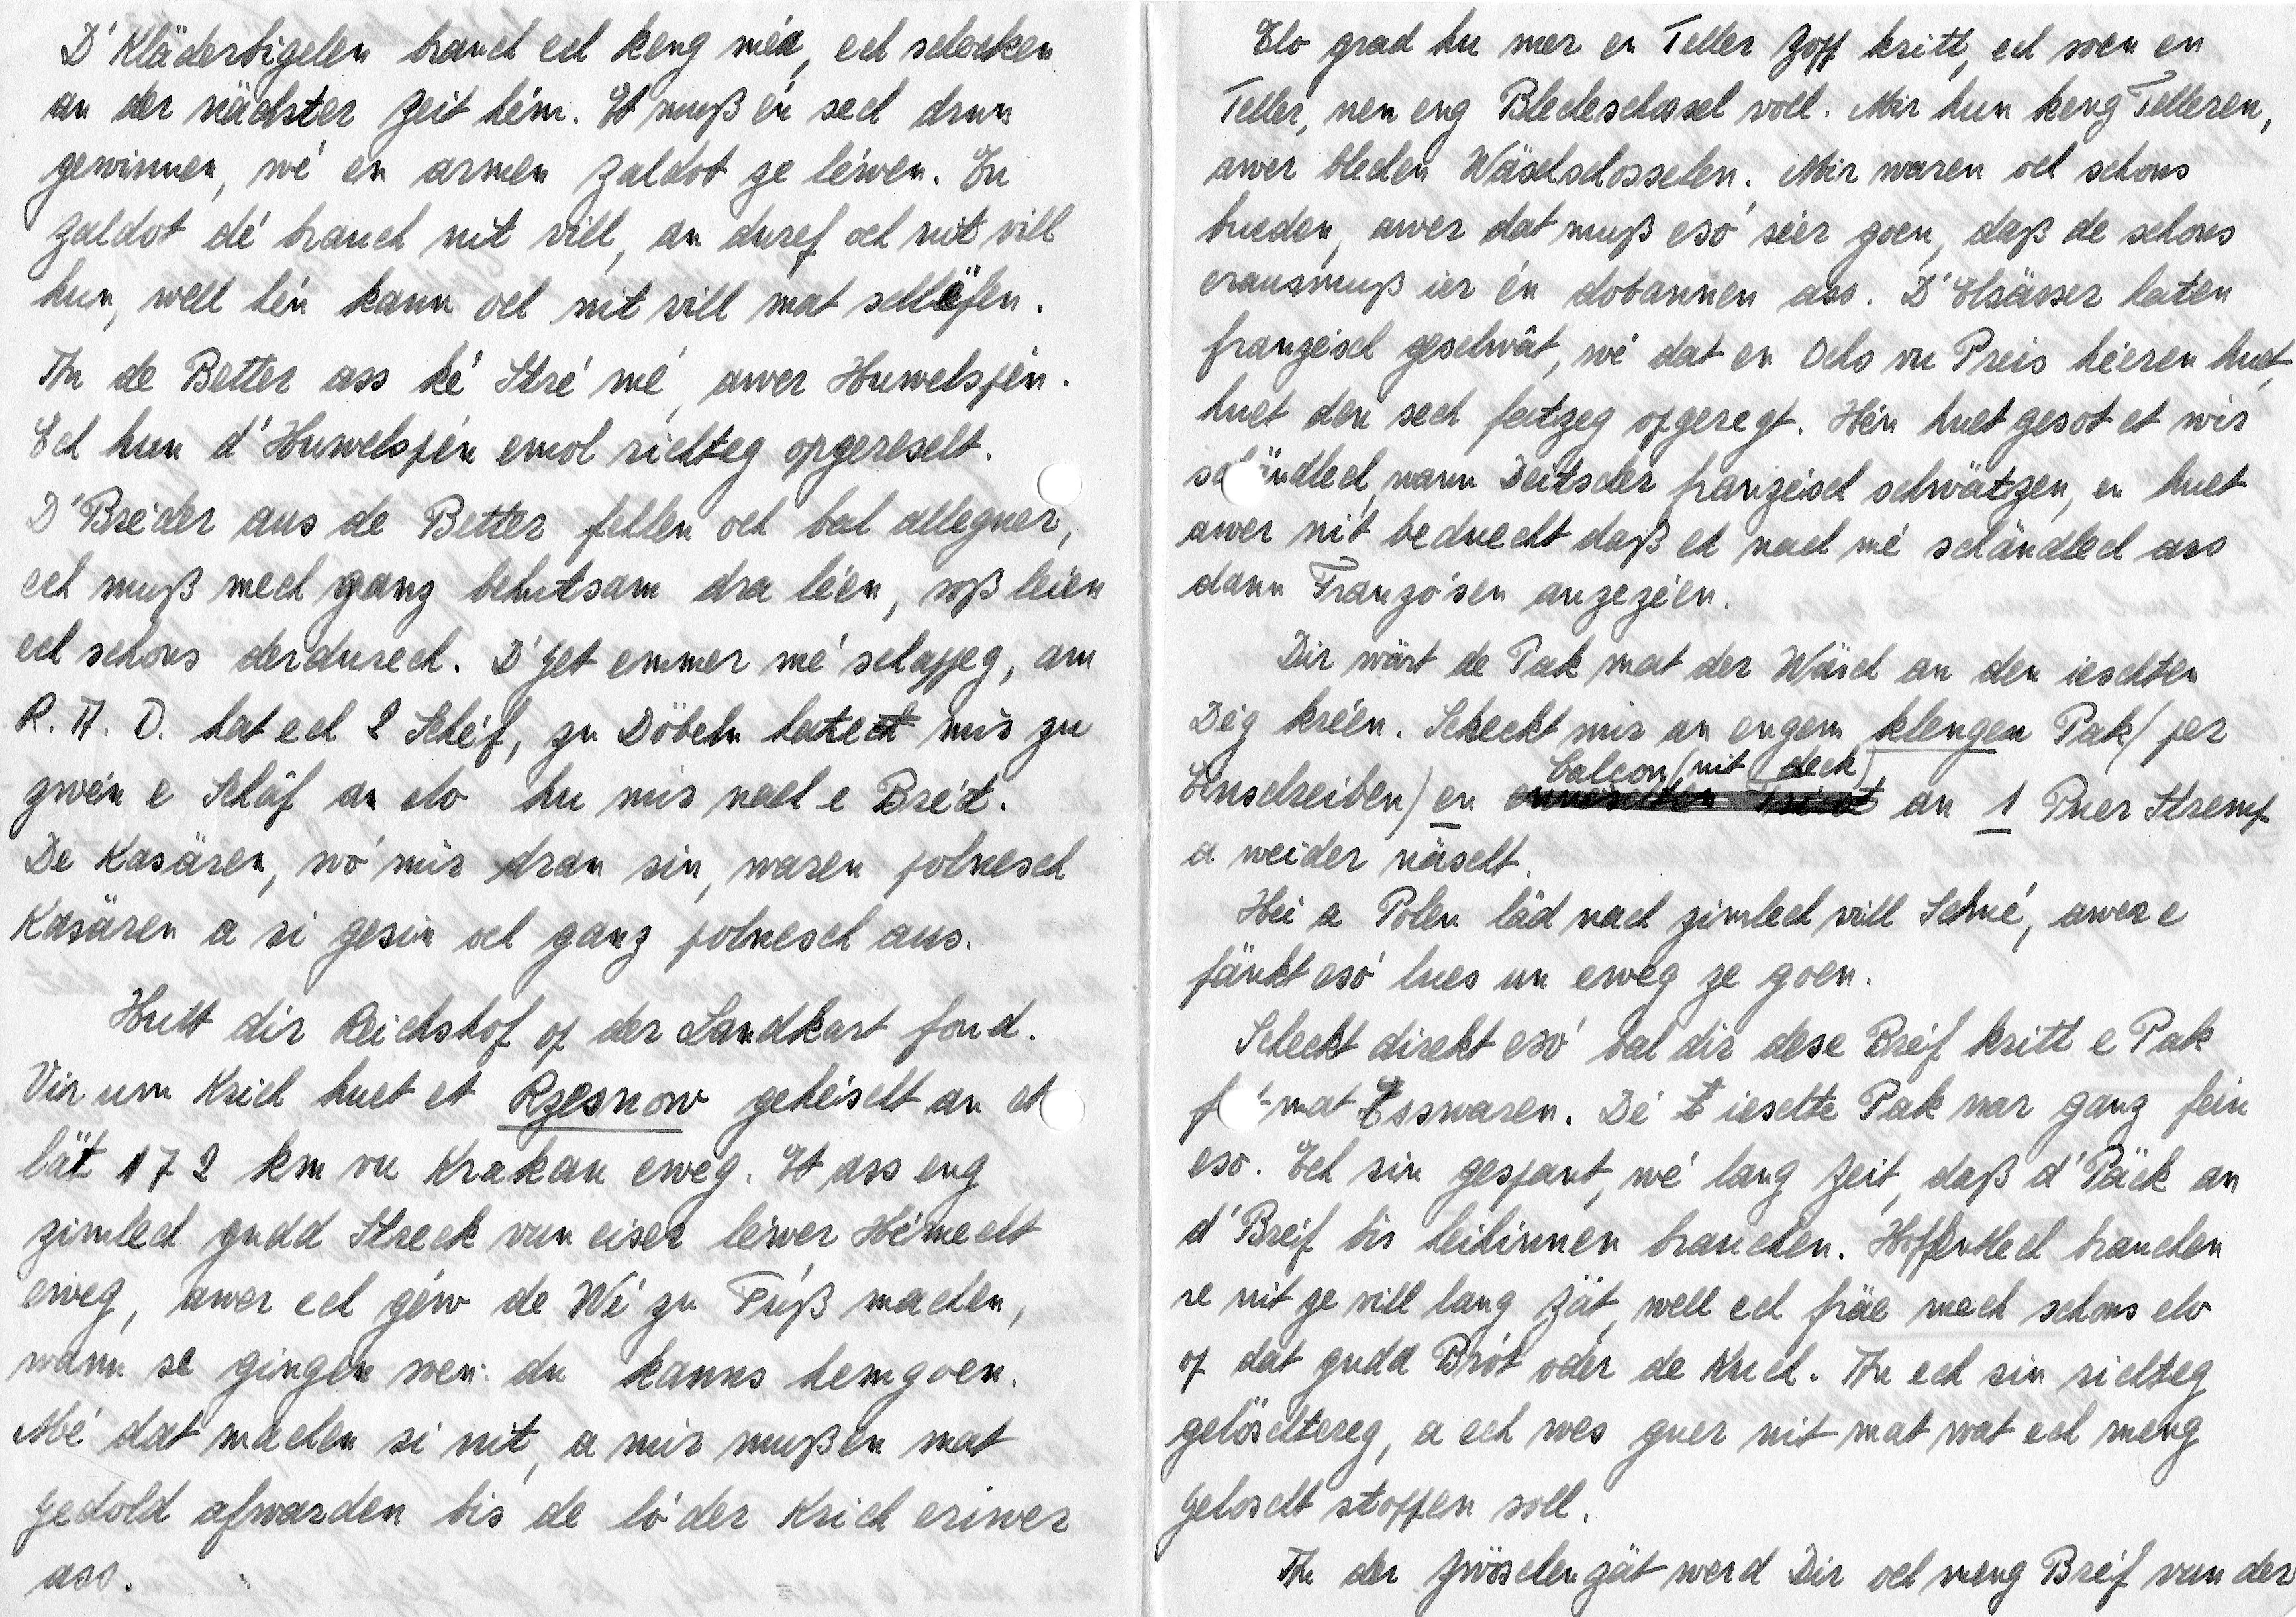 D'Kläderbigelen brauch ech keng méa, ech schecken
an der nächster Zeit hém. Et muß én sech drun
gewinnen, wé en armen Zaldot ze léwen. En
Zaldot dé brauch nit vill, an duref och nit vill
hun, well hén kann och nit vill mat schlëfen.
An de Better ass ké Stré mé, awer Huwelspén.
Ech hun d'Huwelspén emol richteg opgereselt.
D'Bréder aus de Better fehlen och bal alleguer,
ech muß mech ganz behutsam dra léen, soß leien
ech schons derdurech. D'get emmer mé schappeg, am
R.A.D. hat ech 2 Schéf, zu Döbeln hate mir zu
zwén e Schâf an elo hu mir nach e Brét.
De Kasären, wó mir dran sin, waren polnesch
Kasären a si gesin och ganz polnesch aus.
Hutt dir Reichshof op der Landkart fond.
Virum Krich huet et Rzesnow gehéischt an et
lät 172 km vu Krakau eweg. Et ass eng
zimlech gudd Streck vun eiser léwer Hémecht
eweg, awer ech géw de Wé zu Fúß machen,
wann se gingen soen: du kanns hemgoen.
Mé dat machen si nit, a mir mußen mat
Gedold ofwarden bis de ló der Krich eriwer
ass.
Elo grad hu mer en Teller Zopp kritt, ech soen en
Teller, nen eng Blecheschossel voll. Mir hun keng Telleren,
awer blechen Wäschschosselen. Mir waren och schons
bueden, awer dat muß esó séer goen, daß de schons
erausmuß ier én dobannen ass. D'Elsässer haten
franzéisch geschwât, wé dat en Ochs vu Preis héieren huet,
huet den sech fatzeg opgeregt. Hén huet gesot et wir
schändlech, wann Deitscher franzéisch schwätzen, en huet
awer nit beduecht daß et nach mé schändlech ass
dann Franzósen anzezéien.
Dir wärt de Pak mat der Wäsch an den ieschten
Dég kréen. Scheckt mir an engem klengen Pak (per
Einschreiben) en Calçon (nit deck) an 1 Puer Stremp
a weider näscht.
Hei a Polen läd nach zimlech vill Schné, awer e
fänkt esó lues un eweg ze goen.
Scheckt direkt esó bal dir dese Bréf kritt e Pak
mat Esswaren. Dé ieschte Pak war ganz fein
eso. Ech sin gespant, wé lang Zeit, daß d'Päck an
d'Breif bis heihinnen brauchen. Hoffentlech brauchen
se nit ze vill lang Zät, well ech fräe mech schons elo
op dat gudd Brót oder de Kuch. An ech sin richteg
gelöschtereg, a ech wes guer nit mat wat ech meng
Geloscht stoppen soll.
An der Zwöschenzät werd Dir och meng Bréf vun der